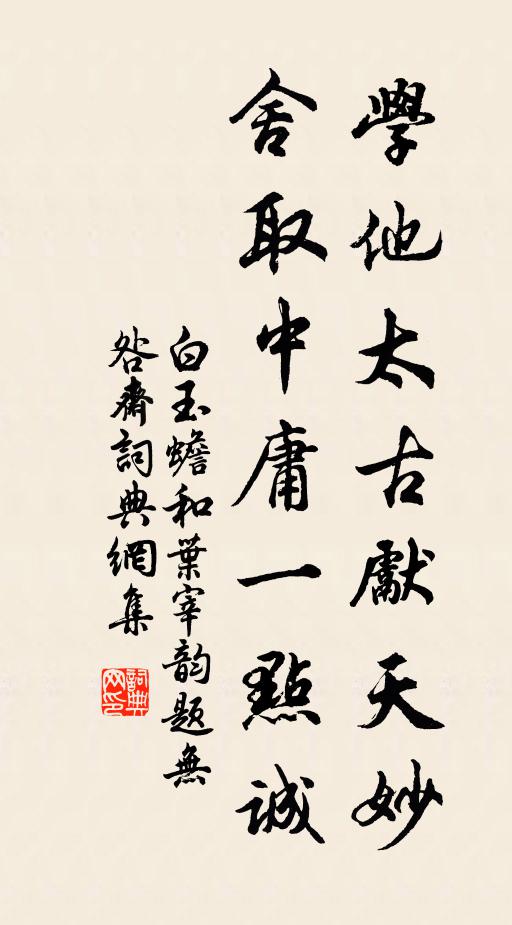 學他太古獻天妙
舍取中庸一點誠
白玉蟾和葉宰韵題無
咎齋詞典網集
詞典網印